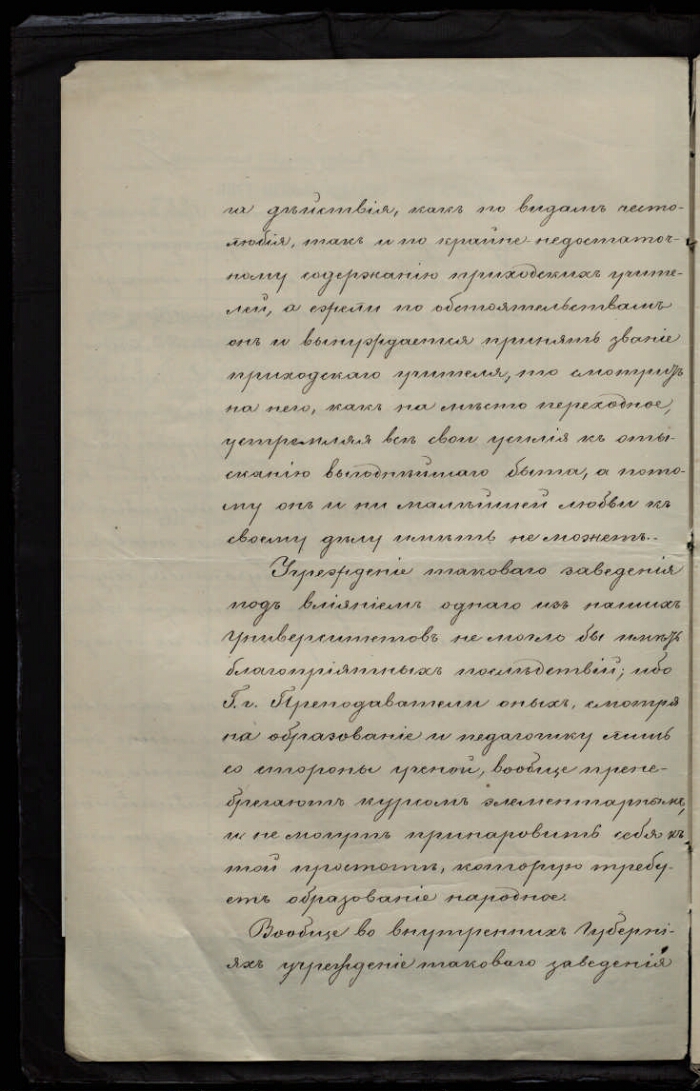 га дѣйствія, какъ по видамъ често-
любія, такъ и по крайне-недостаточ-
ному содержанію приходскихъ учите-
лей, а ежели по обстоятельствамъ
онъ и вынуждается принять званіе
приходскаго учителя, то смотритъ
на него, какъ на мѣсто переходное,
устремляя всѣ свои усилія къ оты-
сканію выгоднѣйшаго быта, а пото-
му онъ и ни малѣйшей любви къ
своему дѣлу имѣть не можетъ.-
Учрежденіе таковаго заведенія
подъ вліяніемъ однаго изъ нашихъ
Университетовъ не могло бы имѣть
благопріятныхъ послѣдствій; ибо
Г.г. Преподаватели оныхъ, смотря
на образованіе и педагогику лишь
со стороны ученой, вообще прене-
брегаютъ курсомъ элементарнымъ,
и не могутъ приноровить себя къ
той простотѣ, которую требу-
етъ образованіе народное.
Вообще во внутреннихъ Губерні-
яхъ учрежденіе таковаго заведенія